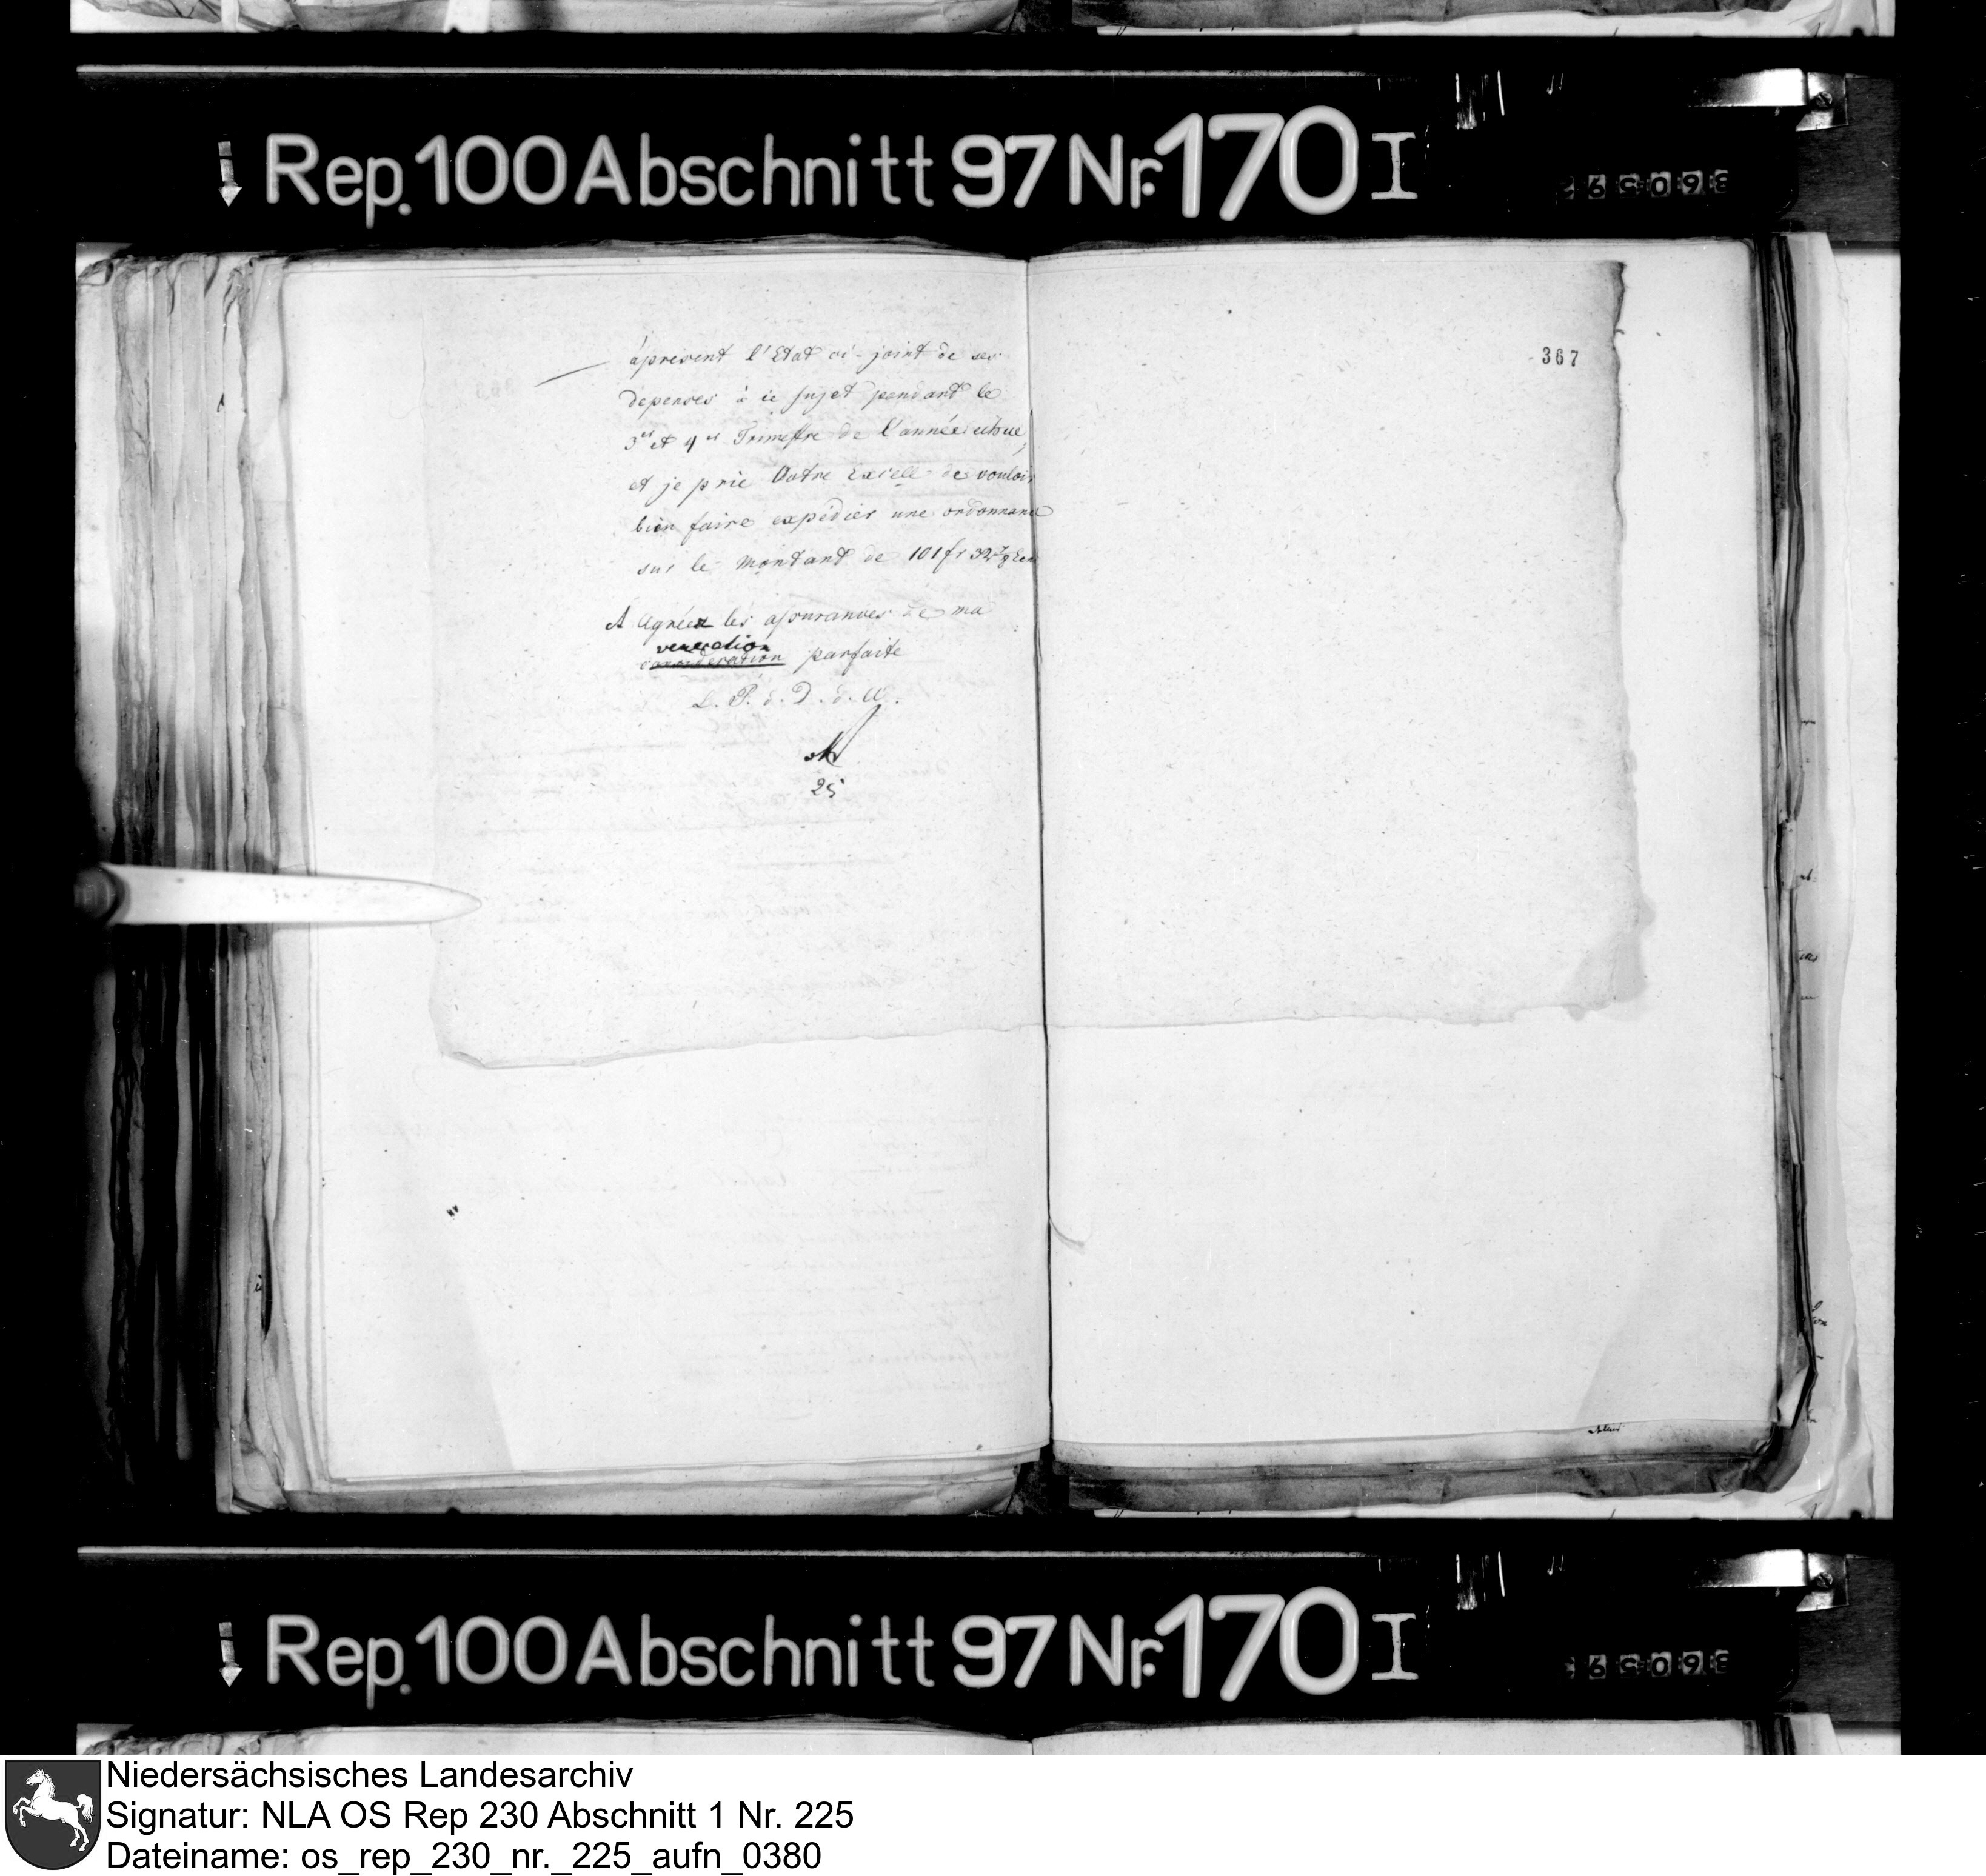 Rep. 100 Abschnitt 97 Nr. 170 I
367
àpresent l'Etat ci-joint de ses
depenses à ce sujet pendant le
3 et 4 Trimestre de l'année echue,
et je prie Votre Excell. de vouloir
bien faire expédier une ordonnance
sur le montant de 101 fr 32
Agréez les assurances de ma
veneration
consideration parfaite
L. P. d. D. d. W.
25
Rep. 100 Abschnitt 97 Nr. 170 I
Niedersächsisches Landesarchiv
Signatur: NLA OS Rep 230 Abschnitt 1 Nr. 225
Dateiname: os_rep_230_nr._225_aufn_0380